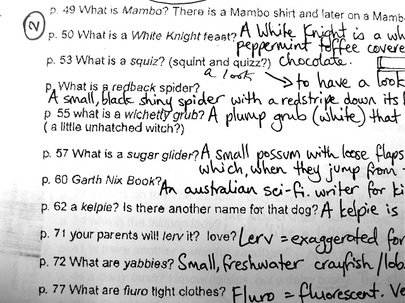 p. 49 What is Mambo? There is a Mambo shirt and later on a Mambo
②
p. 50 What is a White Knight feast? A White Knight is a wh
peppermint toffee covere
p. 53 What is a squiz? (squint and quizz?) chocolate.
a look → to have a look
p. What is a redback spider?
A small, black shiny spider with a redstripe down its
p 55 what is a wichetty grub? A plump grub (white) that
( a little unhatched witch?)
p. 57 What is a sugar glider? A small possum with loose flaps
which, when they jump from
p. 60 Garth Nix Book? An australian sci-fi. writer for
p. 62 a kelpie? Is there another name for that dog? A kelpie is
p. 71 your parents will lerv it? love? Lerv = exaggerated
p. 72 What are yabbies? Small, freshwater crayfish /
p. 77 What are fluro tight clothes? Fluro = fluorescent.